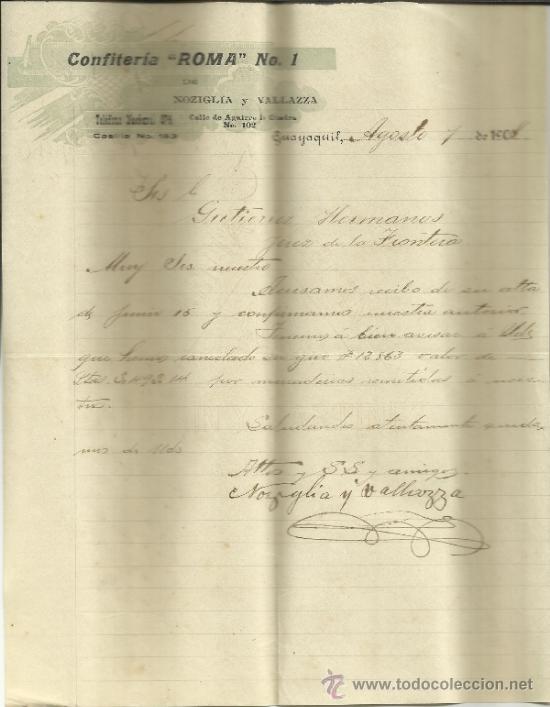 Confitería "ROMA" No. 1
DE
NOZIGLIA y VALLAZZA
Teléfono Nacional
Calle de Aguirre
Casilla No. 163
No. 102
Guayaquil, Agosto 7 de 190
Srs
Gutierrez Hermanos
Jerez de la Frontera
Muy Srs nuestro
Acusamos recibo de su atta
de Junio 15 y confirmamos nuestra anterior
Tenemos á bien avisar á Uds
que hemos cancelado su giro # 12863 valor de
por mercaderias remitidas á nues
tro.
Saludandos atentamente queda
mos de Uds
Attos y SS y amigos
Noziglia y Vallazza
todocoleccion
www.todocoleccion.net